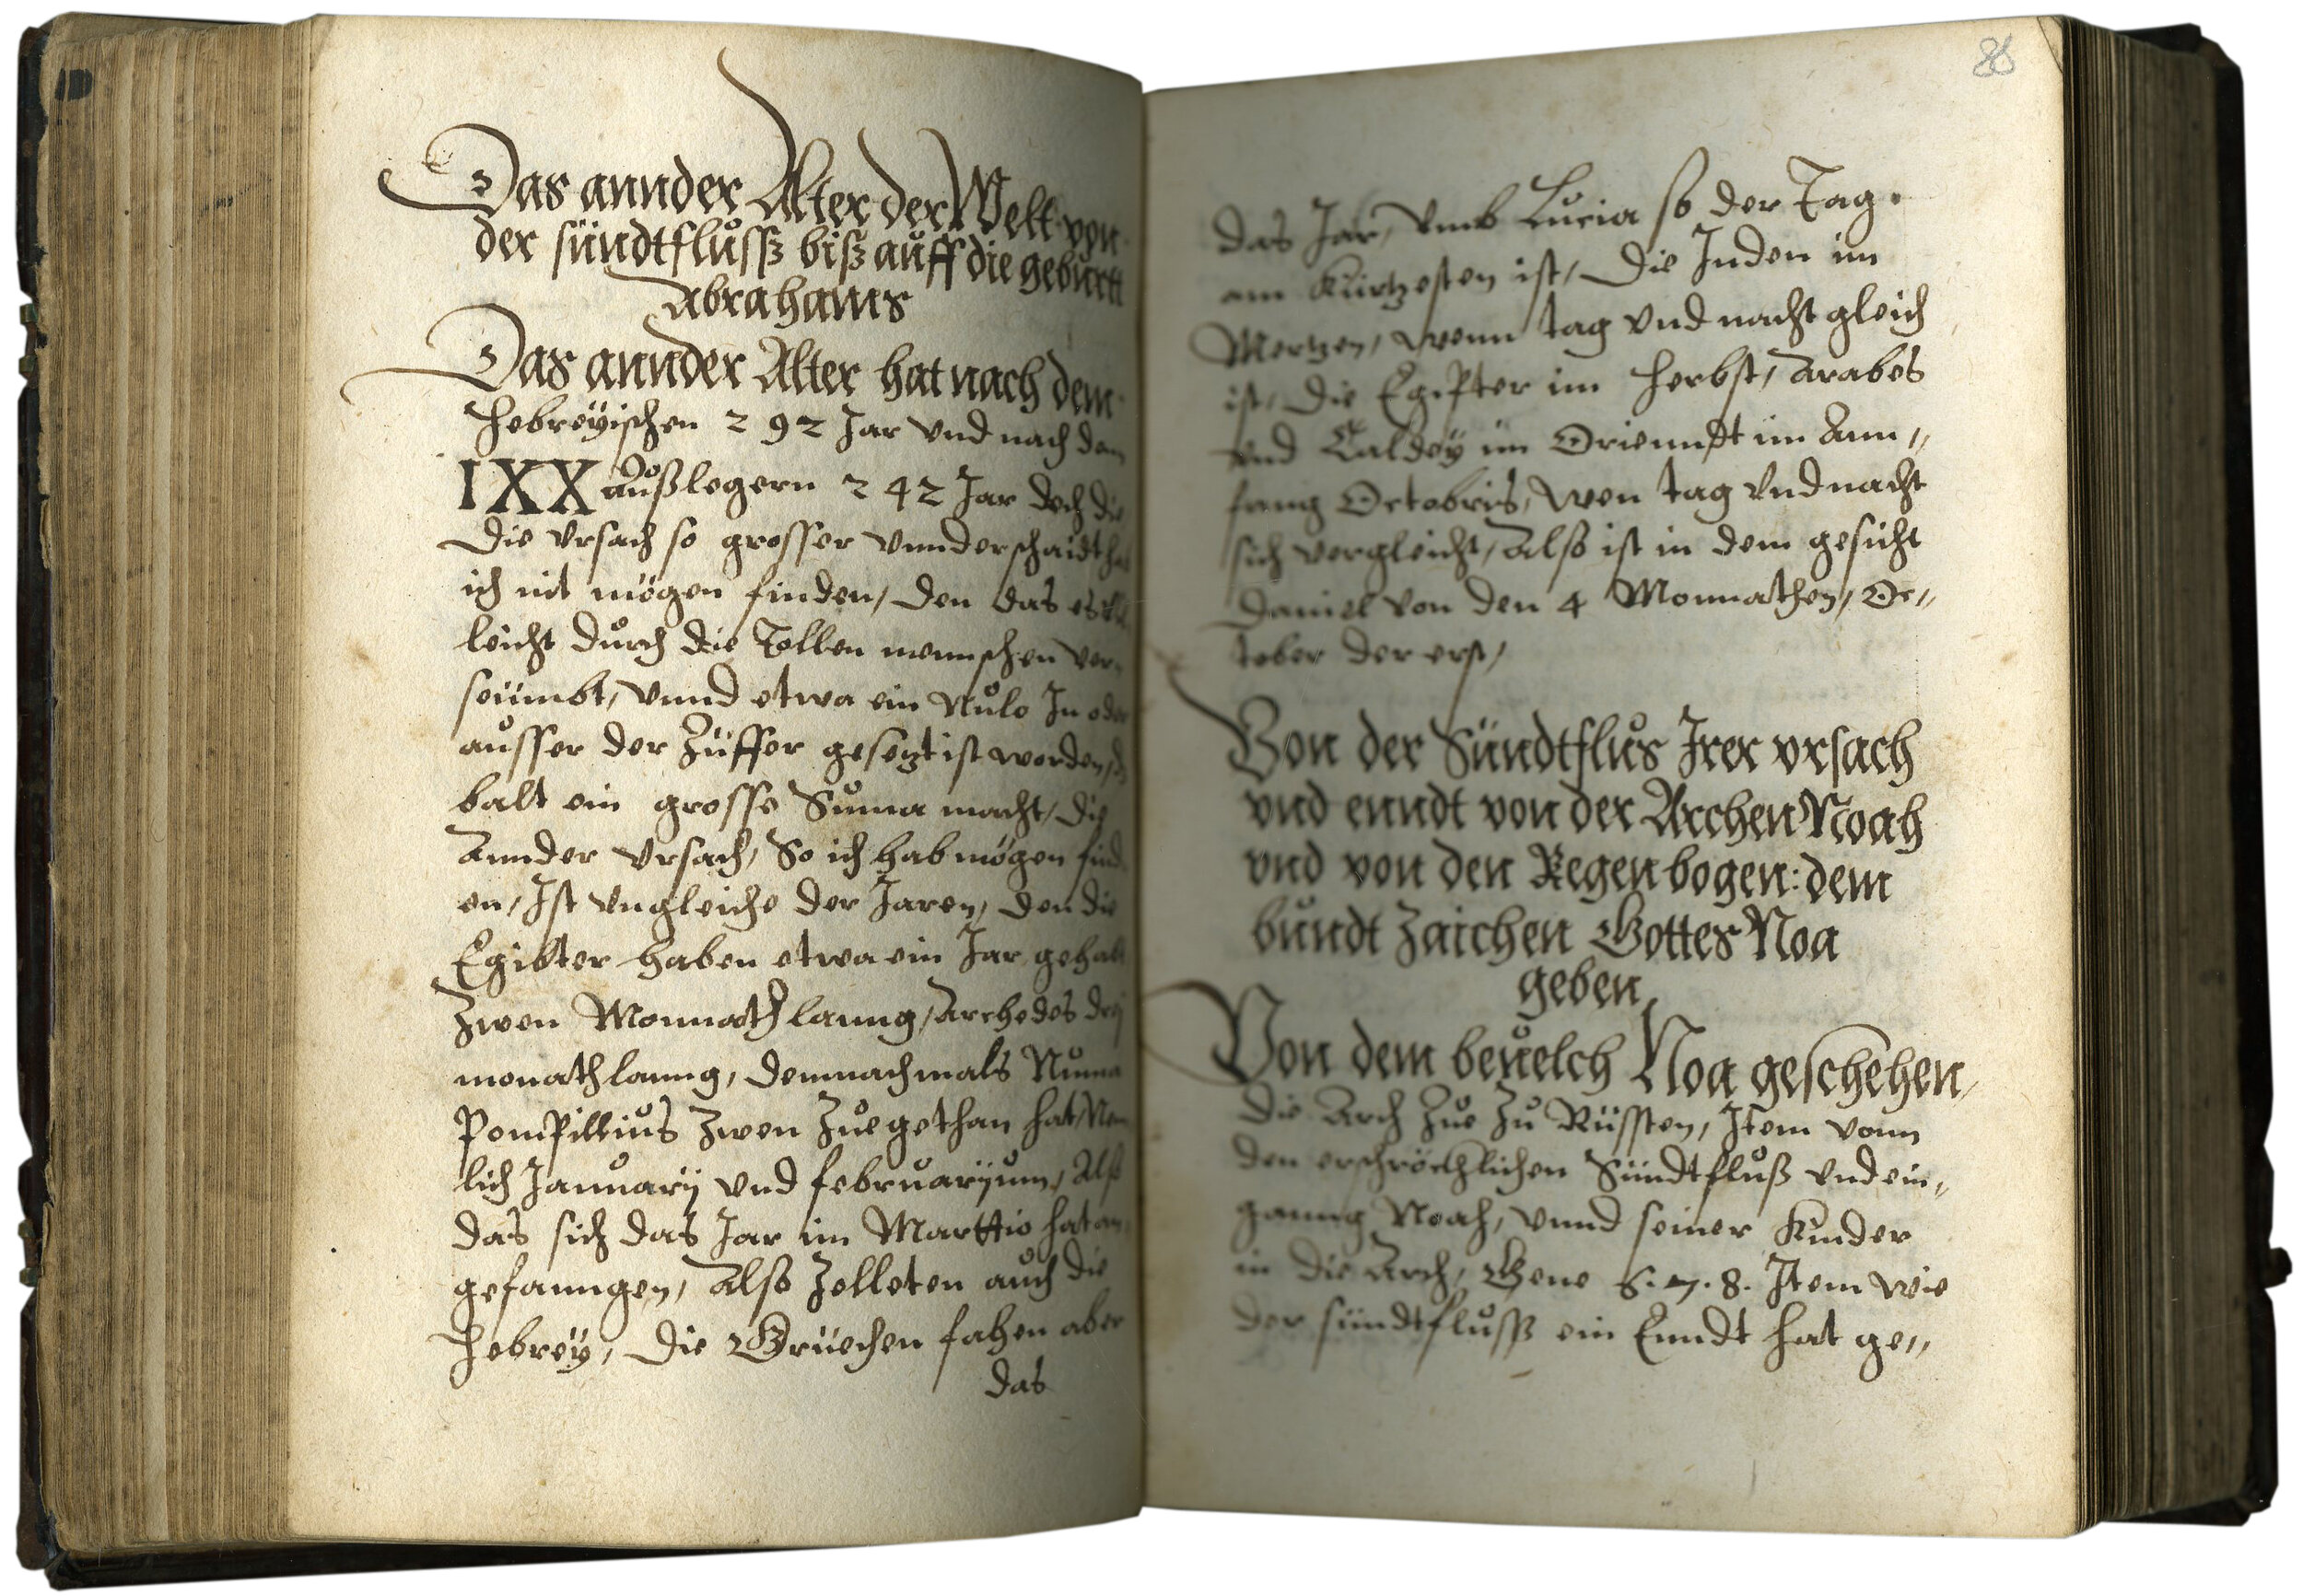 Das annder Alter der Welt von
der sündtflusß biß auff die geburtt
Abrahams
Das annder Alter hat nach dem
Hebreyischen 292 Jar vnd nach dem
IXX außlegern 242 Jar doch die
die vrsach so grosser vnnderschaidt hab
ich nit mögen finden, den das es
leicht durch die Tollen mennschen ver
seümbt, vnnd etwa ein Nulo In oder
ausser der Züffer gesetzt ist worden,
balt ein grosse Suma macht, die
Annder vrsach, So ich hab mögen find
en, Ist vngleiche der Jaren, den die
Egibter haben etwa ein Jar gehabt
Zwen Monnath lanng, Archedes drej
monath lanng, demnachmals Numa
Pompillius zwen zuegethan hat, Nem
lich Januarij vnd februarijum, Also
das sich das Jar im Marttio hat an
gefanngen, Also zelleten auch die
Hebrey, die Grüechen fahen aber
das
88
das Jar, vmb Lucia so der Tag
am kürtzesten ist, die Juden im
Mertzen, wenn tag vnd nacht gleich
ist, die Egipter im Herbst, Arabes
vnd Caldey im Orienndt im Ann„
fang Octobris, wen tag vnd nacht
sich vergleicht, Also ist in dem gesicht
Daniel von den 4 Monnathen, Oc„
tober der erst,
Von der Sündtflus Irer vrsach
vnd enndt von der Archen Noah
vnd von den Regenbogen: dem
bundt zaichen Gottes Noa
geben,
Von dem beuelch Noa geschehen,
die Arch zue zu Rüssten, Item vonn
den erschröcklichen Sündtfluß vnd ein„
ganng Noah, vnnd seiner Kinder
in die Arch, Gene 6. 7. 8. Item wie
der sündtflusß ein Enndt hat ge„